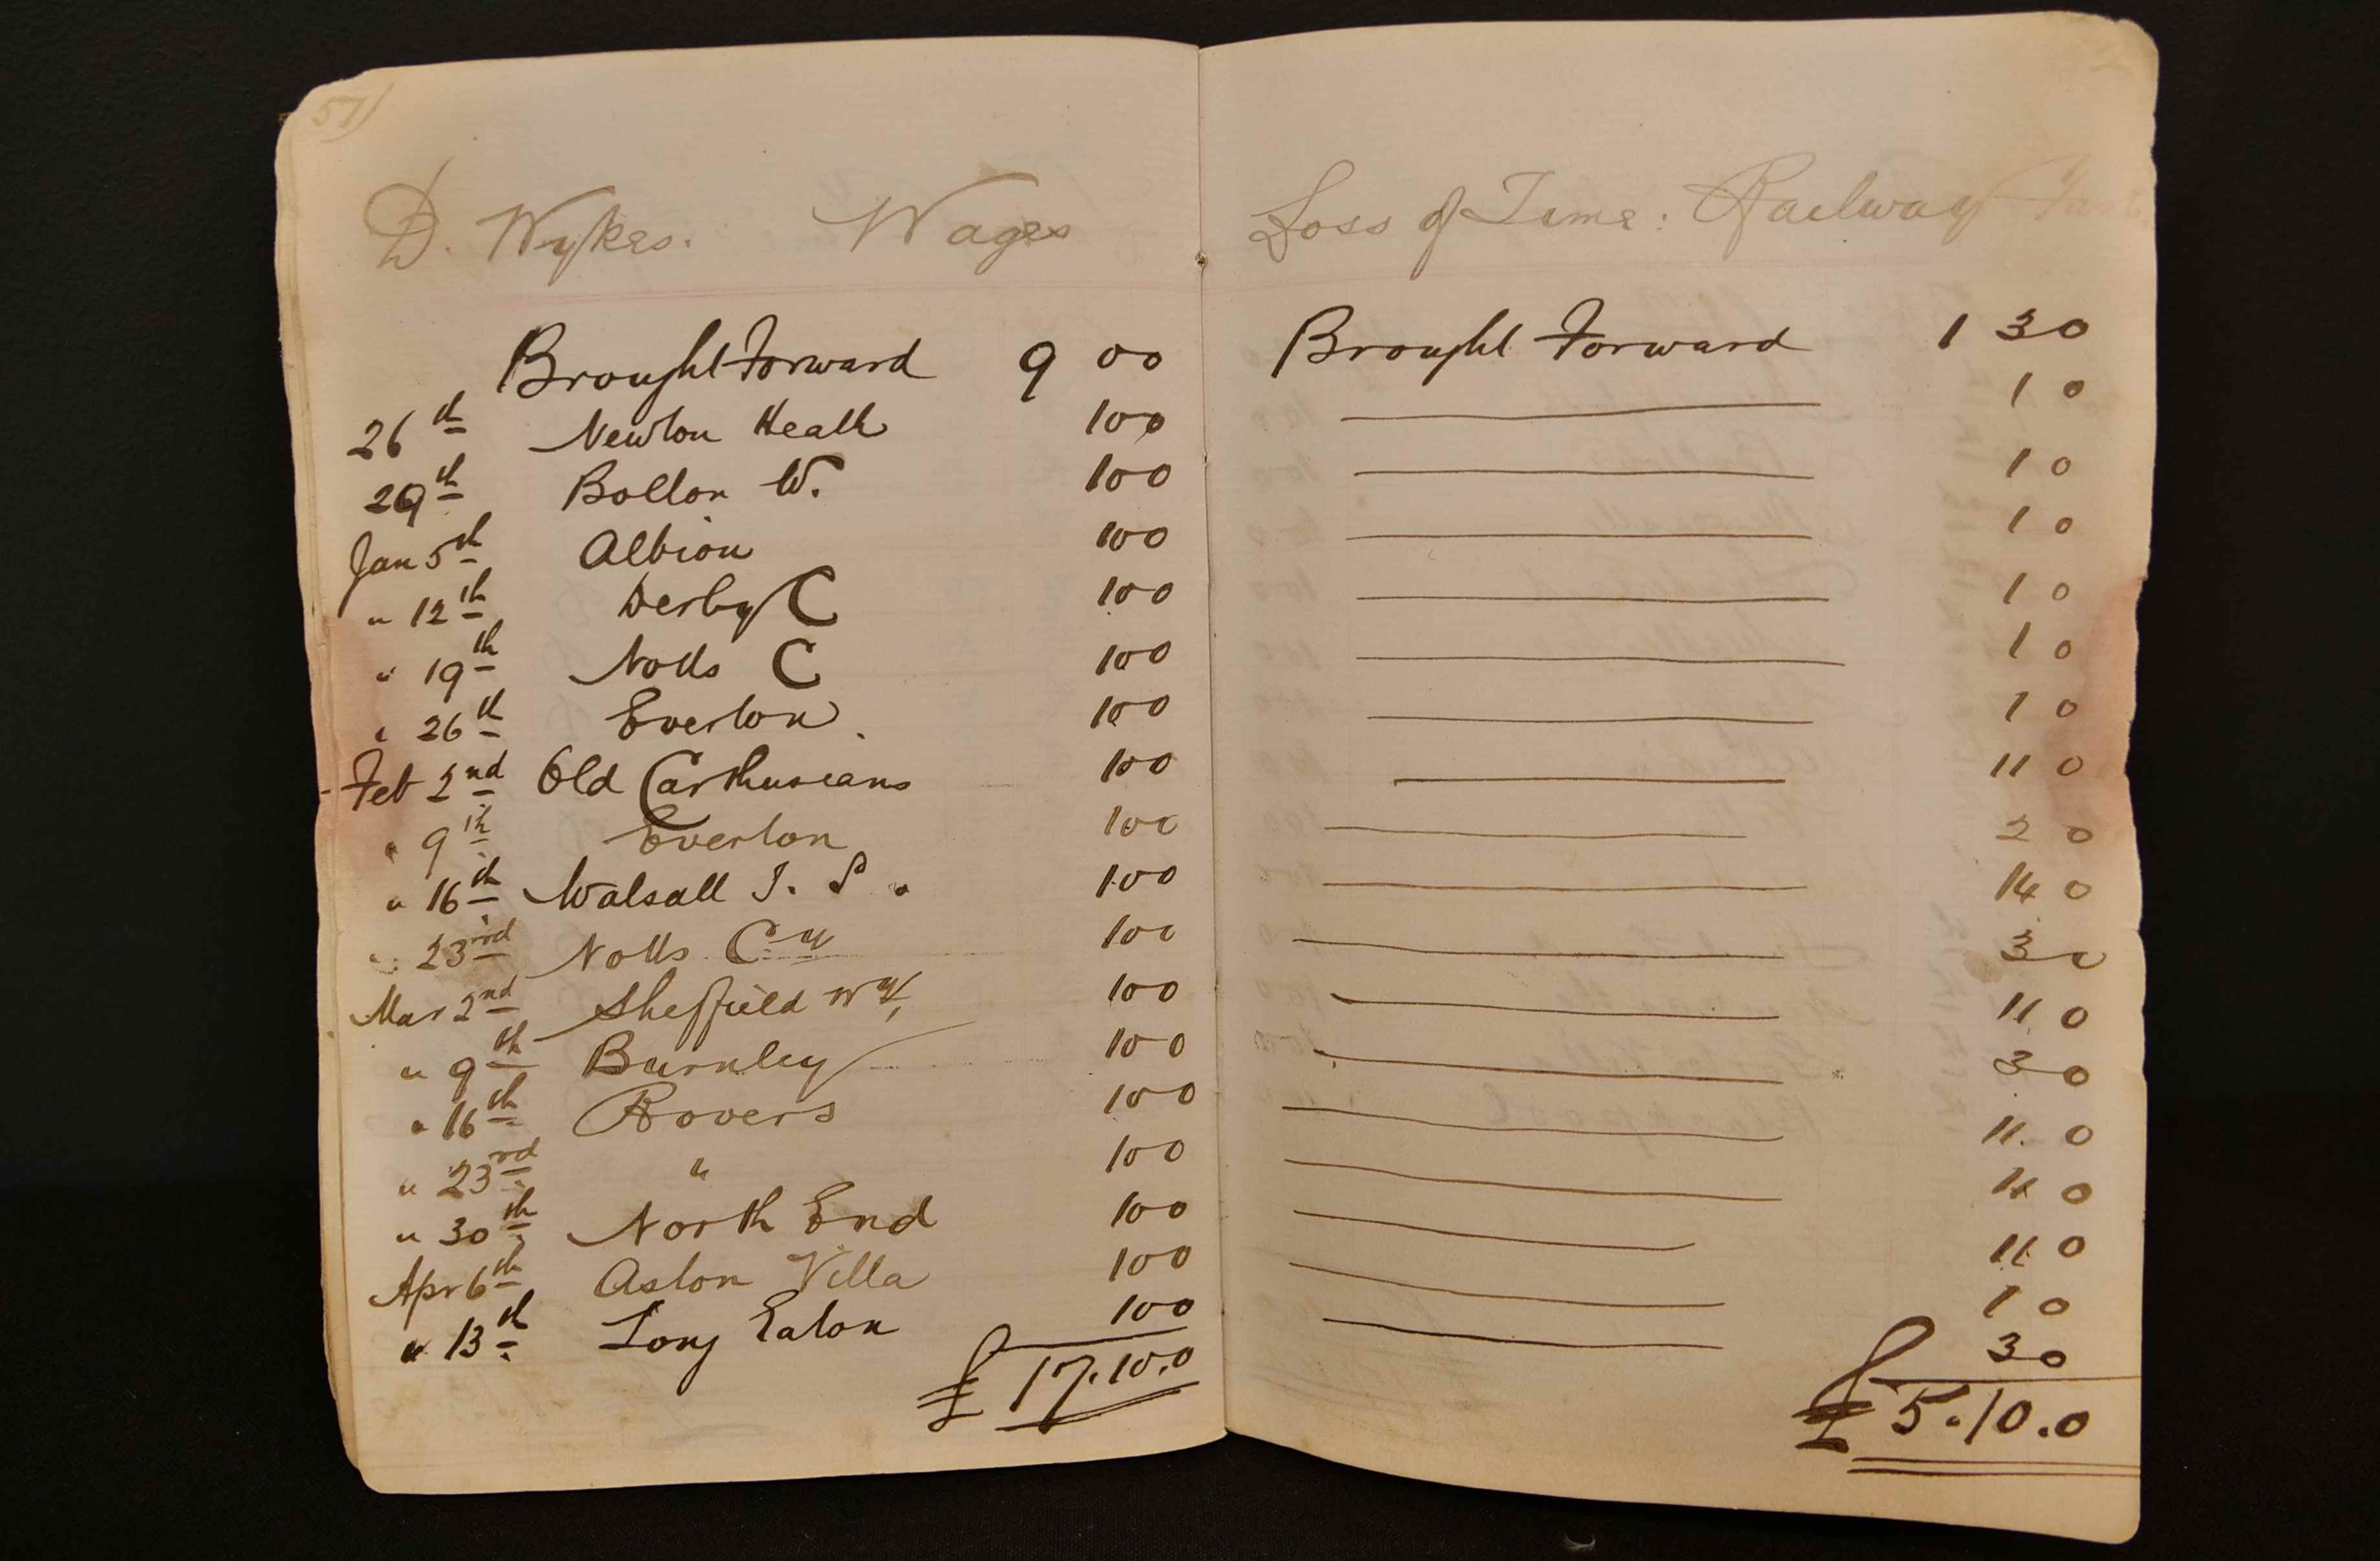 57)
D. Wykes. Wages
Brought Forward 9 00
26th Newton Heath 100
29th Bolton W. 100
Jan 5th Albion 100
" 12th Derby C 100
" 19th Notts C 100
" 26th Everton. 100
Feb 2nd Old Carthusians 100
" 9th Everton 100
" 16th Walsall T. S. 100
" 23rd Notts Cy 100
Mar 2nd Sheffield Wy, 100
" 9th Burnley 100
" 16th Rovers 100
" 23rd " 100
" 30th North End 100
Apr 6th Aston Villa 100
" 13th Long Eaton 100
£ 17.10.0
Loss of Time: Railway
Brought Forward 1 30
1 0
1 0
1 0
1 0
1 0
1 0
11 0
2 0
14 0
3 0
11 0
3 0
11. 0
11 0
11 0
1 0
3 0
£ 5.10.0